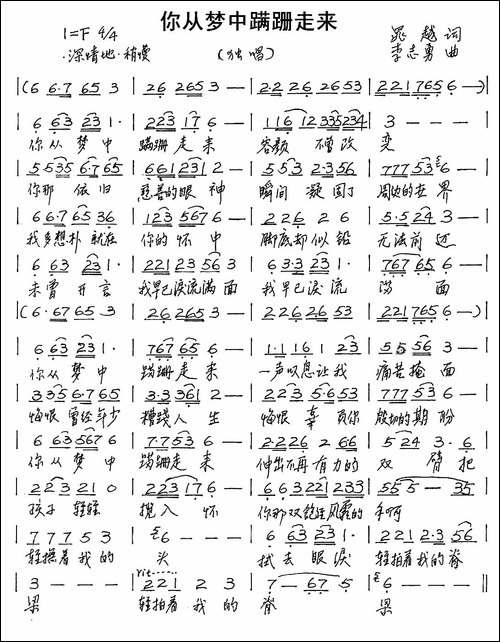 你从梦中蹒跚走来
1=F 4/4
晁越 词
·深情地·稍慢
(独唱)
李志勇 曲
(6 6·7 65 3 | 26 2653 — | 2·2 26 26 53 | 221765 6 —)
6 63 231· | 223 17 6 — | 116 12335234 | 3 — — —
你从梦中 蹒跚走来 容颜不曾改变
5535 6·765 | 661231 2 — | 553 2·356 | 777536 —
你那依旧 慈善的眼神 瞬间凝固了 周边的世界
66·765 36 | 123 5676 — | 226 2 6 | 5·524 3 —
我多想扑就在 你的怀中 脚底却似铅 无法前迈
6 63 231· | 221 23 56 3 | 63·3 231· | 767 65 6 —
未曾开言 我早已泪流满面 我早已泪流 满面
(6·67 65 3 | 26 2653 — | 2226 26 53 | 221765 6 —)
6 63 231· | 767 65 6 — | 1·116 1 23 | 5556 3 —
你从梦中 蹒跚走来 一声叹息让我 痛苦掩面
335 6·765 | 3·3361 2 — | 223 5·653 | 777 53 6 —
悔恨曾经年少 糟践人生 悔恨辜负你 殷切的期盼
6 63 567 6 | 7·753 6 — | 2·226 2 66 | 5 24 3·6
你从梦中 蹒跚走来 伸出不再有力的 双臂把
223 21 0 | 223 17 6 — | 663 221 233 | 555 — 35
孩子轻轻 揽入怀 你那双饱经风霜的 手啊
7 7 7 5 3 | 6 — — — | 6 63 231· | 221 2·3 56
轻抚着我的 头 拭去眼泪 轻拍着我的脊
3 — — — | 221 2 3 | 7 — 67 5 | 6 — — —
rit
梁 轻拍着我的 脊 梁